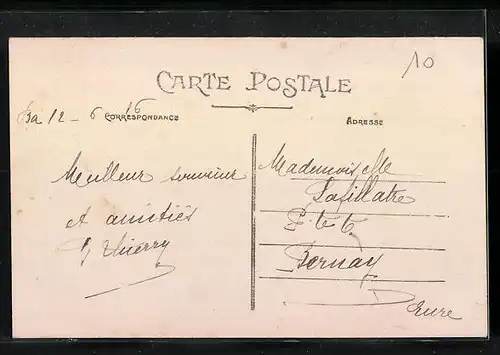 10
CARTE POSTALE
12 - 6 16
CORRESPONDANCE
ADRESSE
Meilleur souvenir
et amitiés
Thierry
Mademoiselle
P. t. t.
Bernay
Eure